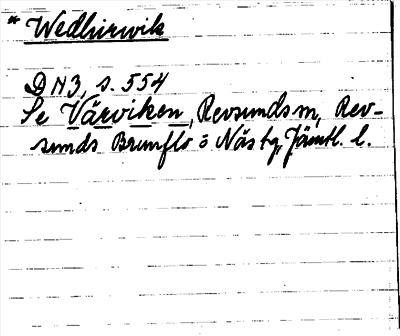 * Wedhurwik
DN3, s. 554
Se Värviken, Revsunds m, Rev-
sunds Brunflo o Näs tg, Jämtl. l.